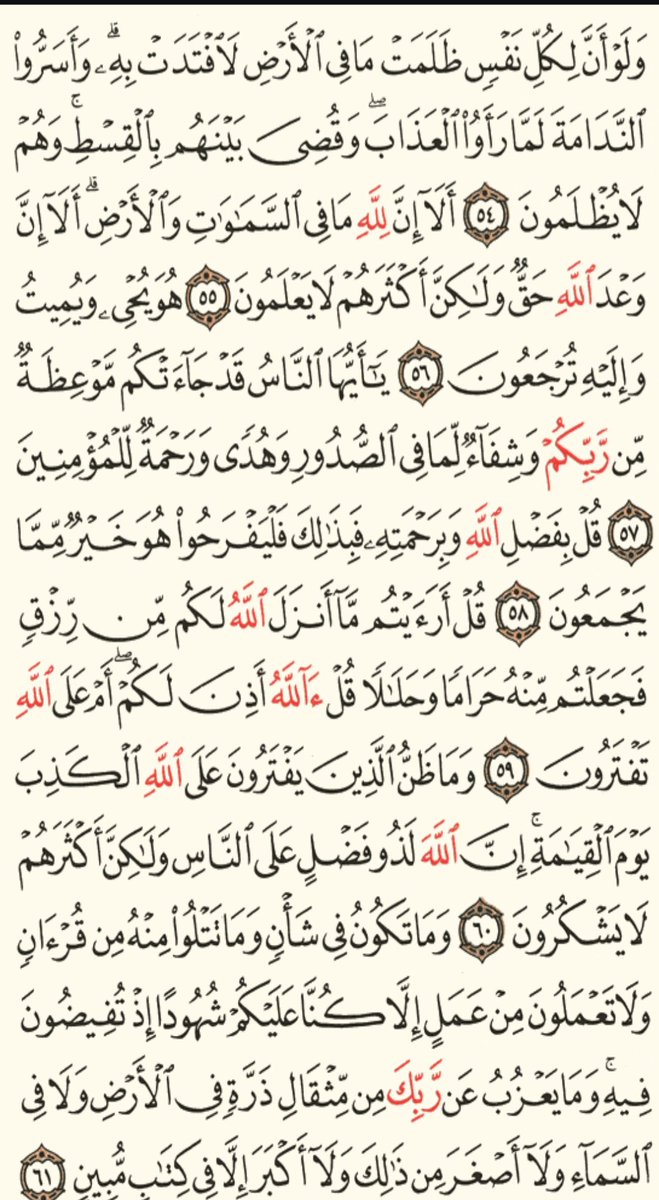 وَلَوۡ أَنَّ لِكُلِّ نَفۡسٖ ظَلَمَتۡ مَا فِي ٱلۡأَرۡضِ لَٱفۡتَدَتۡ بِهِۦۗ وَأَسَرُّواْ
ٱلنَّدَامَةَ لَمَّا رَأَوُاْ ٱلۡعَذَابَۖ وَقُضِيَ بَيۡنَهُم بِٱلۡقِسۡطِۚ وَهُمۡ
لَا يُظۡلَمُونَ ٥٤ أَلَآ إِنَّ لِلَّهِ مَا فِي ٱلسَّمَٰوَٰتِ وَٱلۡأَرۡضِۗ أَلَآ إِنَّ
وَعۡدَ ٱللَّهِ حَقّٞ وَلَٰكِنَّ أَكۡثَرَهُمۡ لَا يَعۡلَمُونَ ٥٥ هُوَ يُحۡيِۦ وَيُمِيتُ
وَإِلَيۡهِ تُرۡجَعُونَ ٥٦ يَٰٓأَيُّهَا ٱلنَّاسُ قَدۡ جَآءَتۡكُم مَّوۡعِظَةٞ
مِّن رَّبِّكُمۡ وَشِفَآءٞ لِّمَا فِي ٱلصُّدُورِ وَهُدٗى وَرَحۡمَةٞ لِّلۡمُؤۡمِنِينَ
٥٧ قُلۡ بِفَضۡلِ ٱللَّهِ وَبِرَحۡمَتِهِۦ فَبِذَٰلِكَ فَلۡيَفۡرَحُواْ هُوَ خَيۡرٞ مِّمَّا
يَجۡمَعُونَ ٥٨ قُلۡ أَرَءَيۡتُم مَّآ أَنزَلَ ٱللَّهُ لَكُم مِّن رِّزۡقٖ
فَجَعَلۡتُم مِّنۡهُ حَرَامٗا وَحَلَٰلٗا قُلۡ ءَآللَّهُ أَذِنَ لَكُمۡۖ أَمۡ عَلَى ٱللَّهِ
تَفۡتَرُونَ ٥٩ وَمَا ظَنُّ ٱلَّذِينَ يَفۡتَرُونَ عَلَى ٱللَّهِ ٱلۡكَذِبَ
يَوۡمَ ٱلۡقِيَٰمَةِۚ إِنَّ ٱللَّهَ لَذُو فَضۡلٍ عَلَى ٱلنَّاسِ وَلَٰكِنَّ أَكۡثَرَهُمۡ
لَا يَشۡكُرُونَ ٦٠ وَمَا تَكُونُ فِي شَأۡنٖ وَمَا تَتۡلُواْ مِنۡهُ مِن قُرۡءَانٖ
وَلَا تَعۡمَلُونَ مِنۡ عَمَلٍ إِلَّا كُنَّا عَلَيۡكُمۡ شُهُودًا إِذۡ تُفِيضُونَ
فِيهِۚ وَمَا يَعۡزُبُ عَن رَّبِّكَ مِن مِّثۡقَالِ ذَرَّةٖ فِي ٱلۡأَرۡضِ وَلَا فِي
ٱلسَّمَآءِ وَلَآ أَصۡغَرَ مِن ذَٰلِكَ وَلَآ أَكۡبَرَ إِلَّا فِي كِتَٰبٖ مُّبِينٍ ٦١